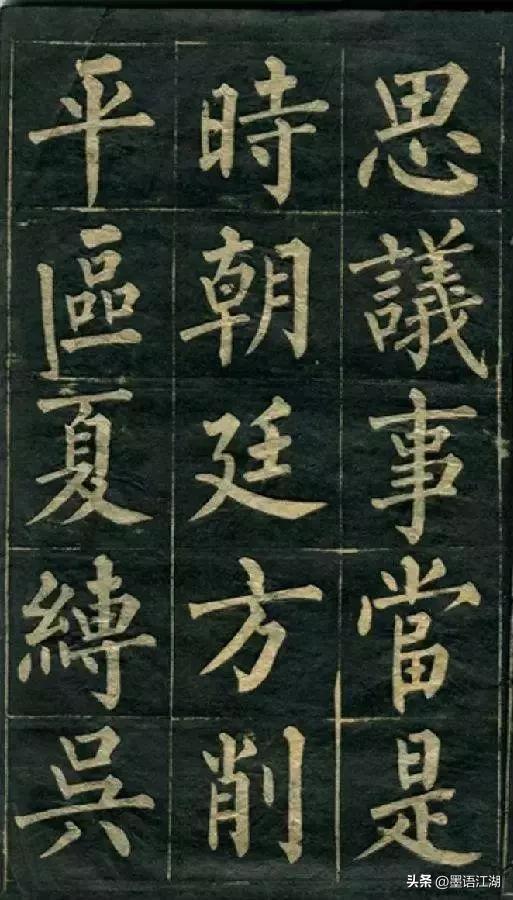 思議事當是
時朝廷方削
平區夏縛吳
头条 @墨语江湖